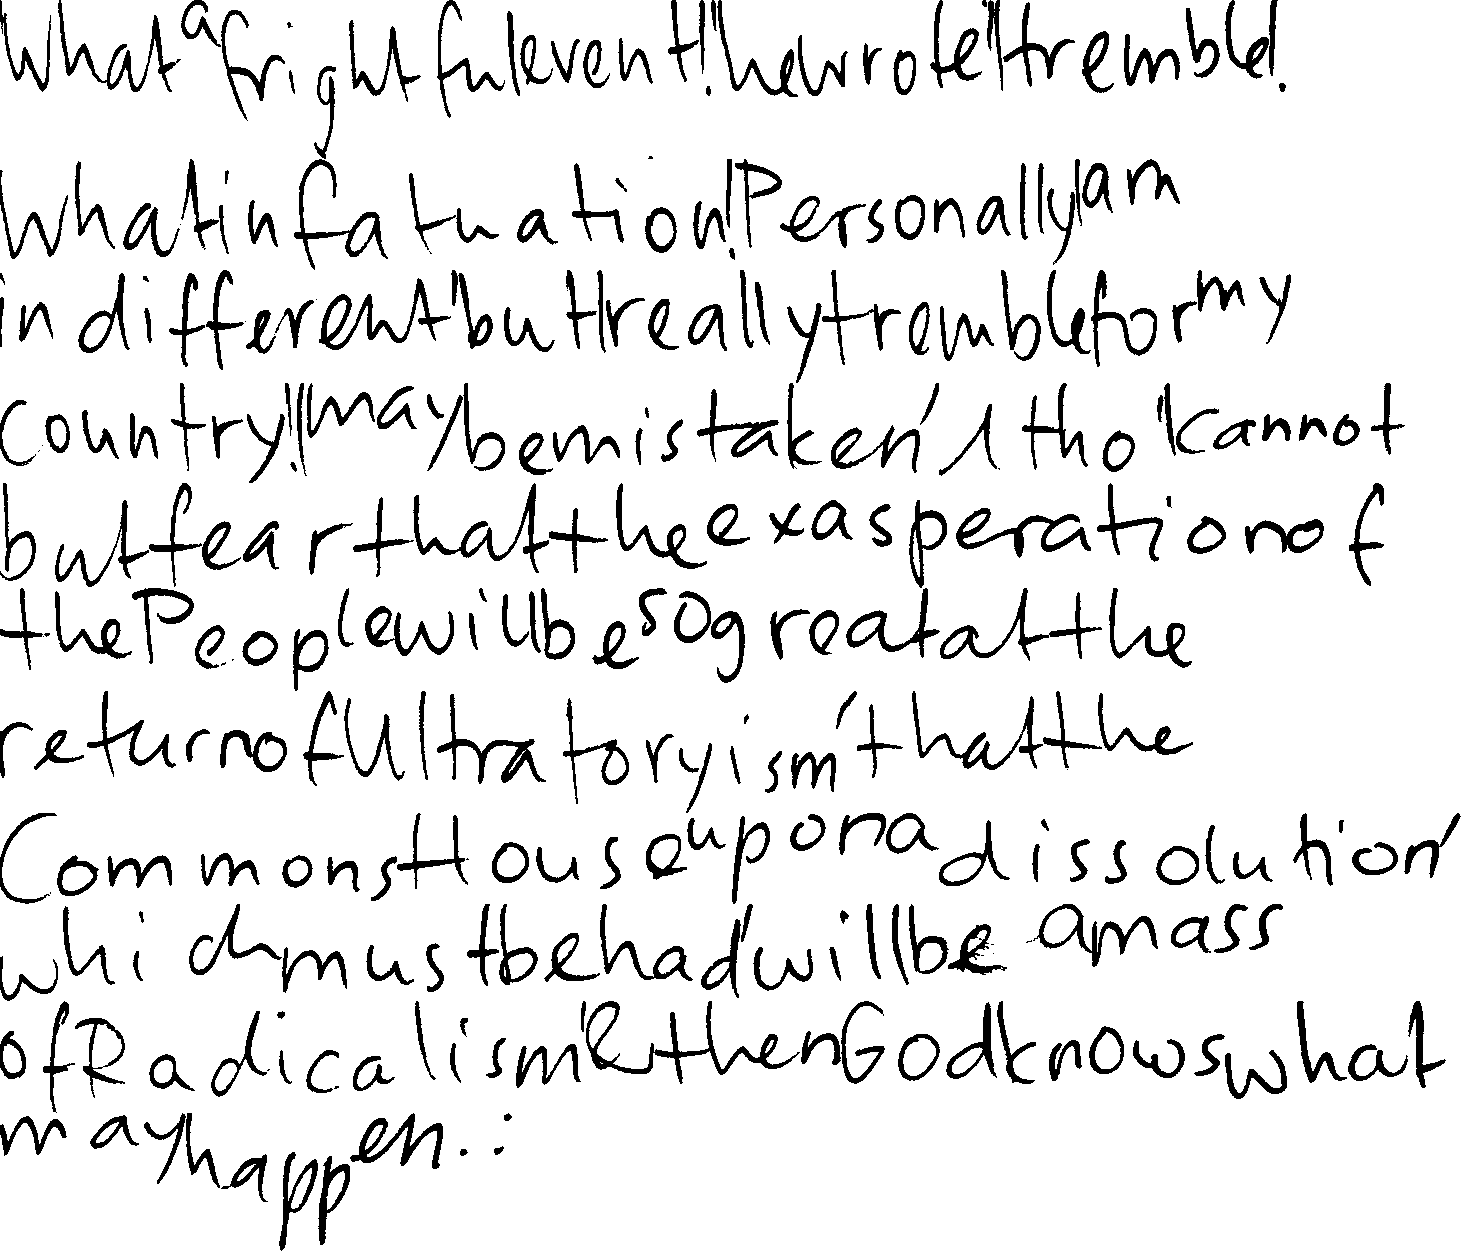 What a frightful event!" he wrote "I tremble!.
What infatuation! Personally I am
indifferent, but I really tremble for my
Country! I may be mistaken, tho' I cannot
but fear that the exasperation of
the People will be so great at the
return of Ultratoryism, that the
Commons House upon a dissolution,
which must be had, will be a mass
of Radicalism, & then God knows what
may happen...